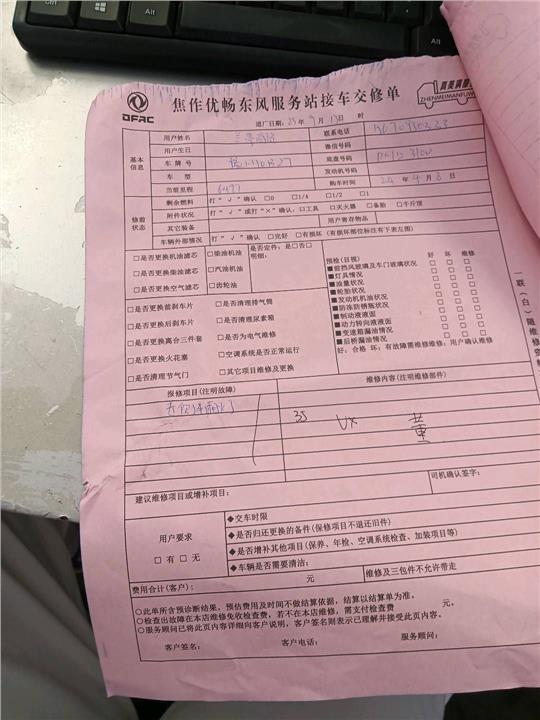 DFAC
焦作优畅东风服务站接车交修单
真美满服务
ZHENMEIMANFUWU
进厂日期: 25 年 9 月 13 日 时
基本信息
用户姓名 联系电话
用户生日 微信号码
车牌号 底盘号码
车型 发动机号码
当前里程 6477 购车时间 24 年 4 月 8 日
修前状态
剩余燃料 打“√”确认 □0 □1/4 □1/2 □1
附件状况 打“√”或打“×”确认:□工具 □灭火器 □备胎 □千斤顶
其它装备 用户寄存物品
车辆外部情况 打“√”确认 □完好 □有损坏(有损坏部位标注有下表左图)
□是否更换机油滤芯 □柴油机油 是否定件:是□否□
□是否更换柴油滤芯 □汽油机油 明细:
□是否更换空气滤芯 □齿轮油
□是否更换前刹车片 □是否清理排气筒
□是否更换后刹车片 □是否清理尿素箱
□是否更换离合三件套 □是否为电气维修
□是否更换火花塞 □空调系统是否正常运行
□是否清理节气门 □其它项目维修及更换
预检(目视) 好 坏 维修
■前挡风玻璃及车门玻璃状况 □ □ □
■灯具情况 □ □ □
■油量状况 □ □ □
■轮胎状况 □ □ □
■发动机机油状况 □ □ □
■防冻防锈瓶状况 □ □ □
■制动液液面 □ □ □
■动力转向液液面 □ □ □
■变速箱漏油情况 □ □ □
■后桥漏油情况 □ □ □
好:合格 坏:有故障需维修维修:用户确认维修
报修项目(注明故障) 维修内容(注明维修部件)
35 VX 董
司机确认签字:
建议维修项目或增补项目:
用户要求
□有 □无
◆交车时限
◆是否归还更换的备件(保修项目不退还旧件)
◆是否增补其他项目(保养、年检、空调系统检查、加装项目等)
◆车辆是否需要清洁:
费用合计(客户): 元 维修及三包件不允许带走
○此单所含预诊断结果,预估费用及时间不做结算依据,结算以结算单为准。
○检查出故障在本店维修免收检查费,若不在本店维修,需支付检查费 元。
○服务顾问已将此页内容详细向客户说明,客户签名则表示已理解并接受此页内容。
客户签名: 客户电话: 服务顾问:
一联(白)随维修